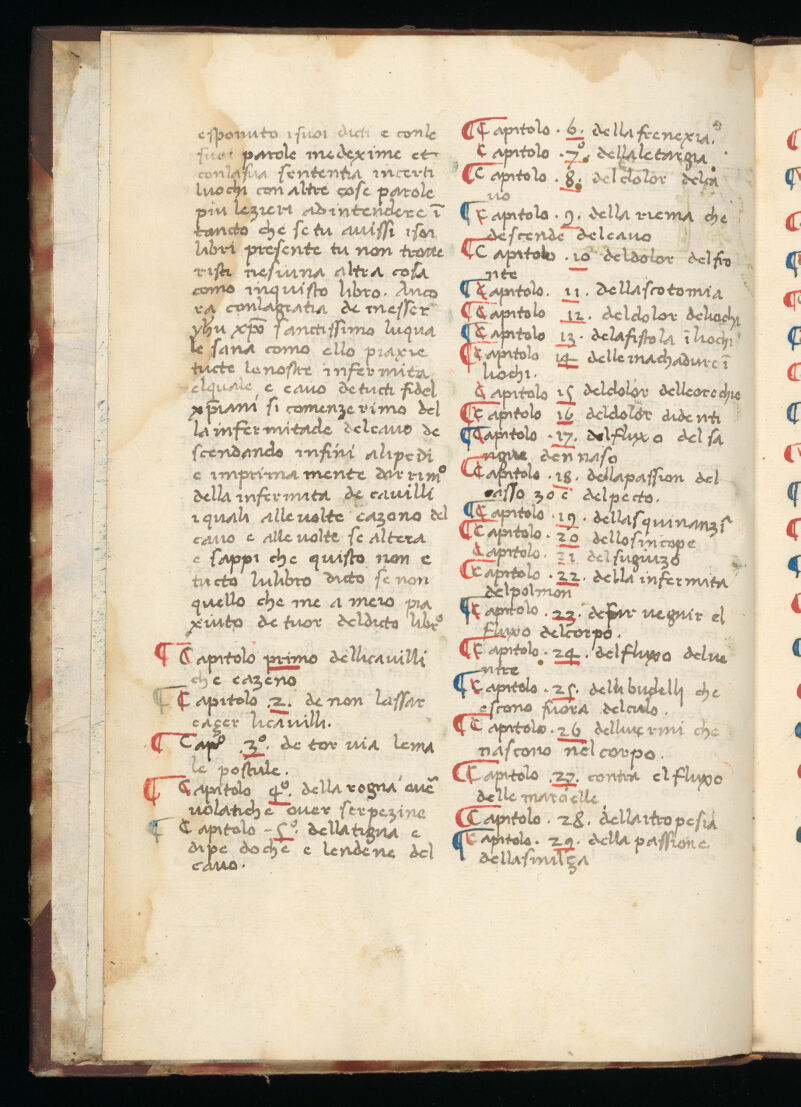 esponuto i suoi dicti e conle
suoi parole medexime et
conlasua sententia incerti
luochi con altre cose parole
piu lezieri ad intendere ī
tancto che se tu avissi i soi
libri presente tu non trove
risti nesiuna altra cosa
como inquisto libro. Anco
ra conlagratia de messer
yhu xpo sanctissimo luqua
le sana como ello piaxie
tucte lenostre infermita
elquale e cavo de tucti fidel
xpiani si comenzerimo del
la infermitade delcavo de
scendando infini alipedi
e imprima mente dirrimo
della infermita de cavilli
i quali alle volte cazono del
cavo e alle volte se altera
e sappi che quisto non e
tucto lulibro dicto se non
quello che me a mero pia
xiuto de tuor deldicto libro
Capitolo primo dellicavilli
che cazeno
Capitolo .2. de non lassar
cazer licavilli.
Capo .3o. de tor via lema
le postule.
Capitolo 4o. della rogna ove
volatiche over serpezine
Capitolo -5o. dellatigna e
dipedoche e lendene del
cavo.
Capitolo .6. della frenexia.
Capitolo .7o. dellaletargia
Capitolo .8. deldolor delca
vo
Capitolo .9. della riema che
descende delcavo
Capitolo .10 deldolor delfro
nte
Capitolo. 11. dellascotomia
Capitolo .12. deldolor deliochi
Capitolo 13. delafistola ī liochi
Capitolo 14 dellemachadure ī
liochi.
Capitolo 15 deldolor delleorechie
Capitolo 16 deldolor didenti
Capitolo .17. delfluxo del sa
ngue den naso
Capitolo .18. dellapassion del
casso zoe delpecto.
Capitolo .19. dellasquinanzia
Capitolo .20 dellosincope
Capitolo . 21 delsuguizo
Capitolo .22. della infermita
delpolmon
Capitolo .23. defar vegnir el
fluxo delcorpo.
Capitolo .24. delfluxo delve
ntre
Capitolo .25. delli budelli che
escono fuora delculo.
Capitolo .26 dellivermi che
nascono nel corpo.
Capitolo .27. contra el fluxo
delle maroelle
Capitolo . 28. dellaitropesia
Capitolo. 29. della passione
dellasmilza